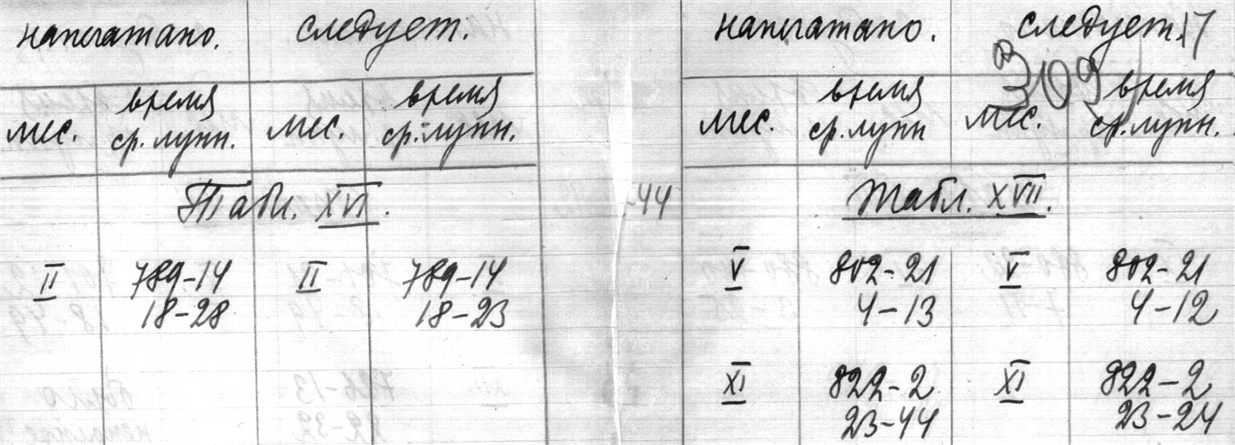 напечатано. следует.
мес. время ср. лунн. мес. время ср. лунн.
Табл. XVI.
II 789-14 II 789-14
18-28 18-23
-44
напечатано. следует. 17
309
мес. время ср. лунн мес. время ср. лунн.
Табл. XVII.
V 802-21 V 802-21
4-13 4-12
XI 822-2 XI 822-2
23-44 23-24